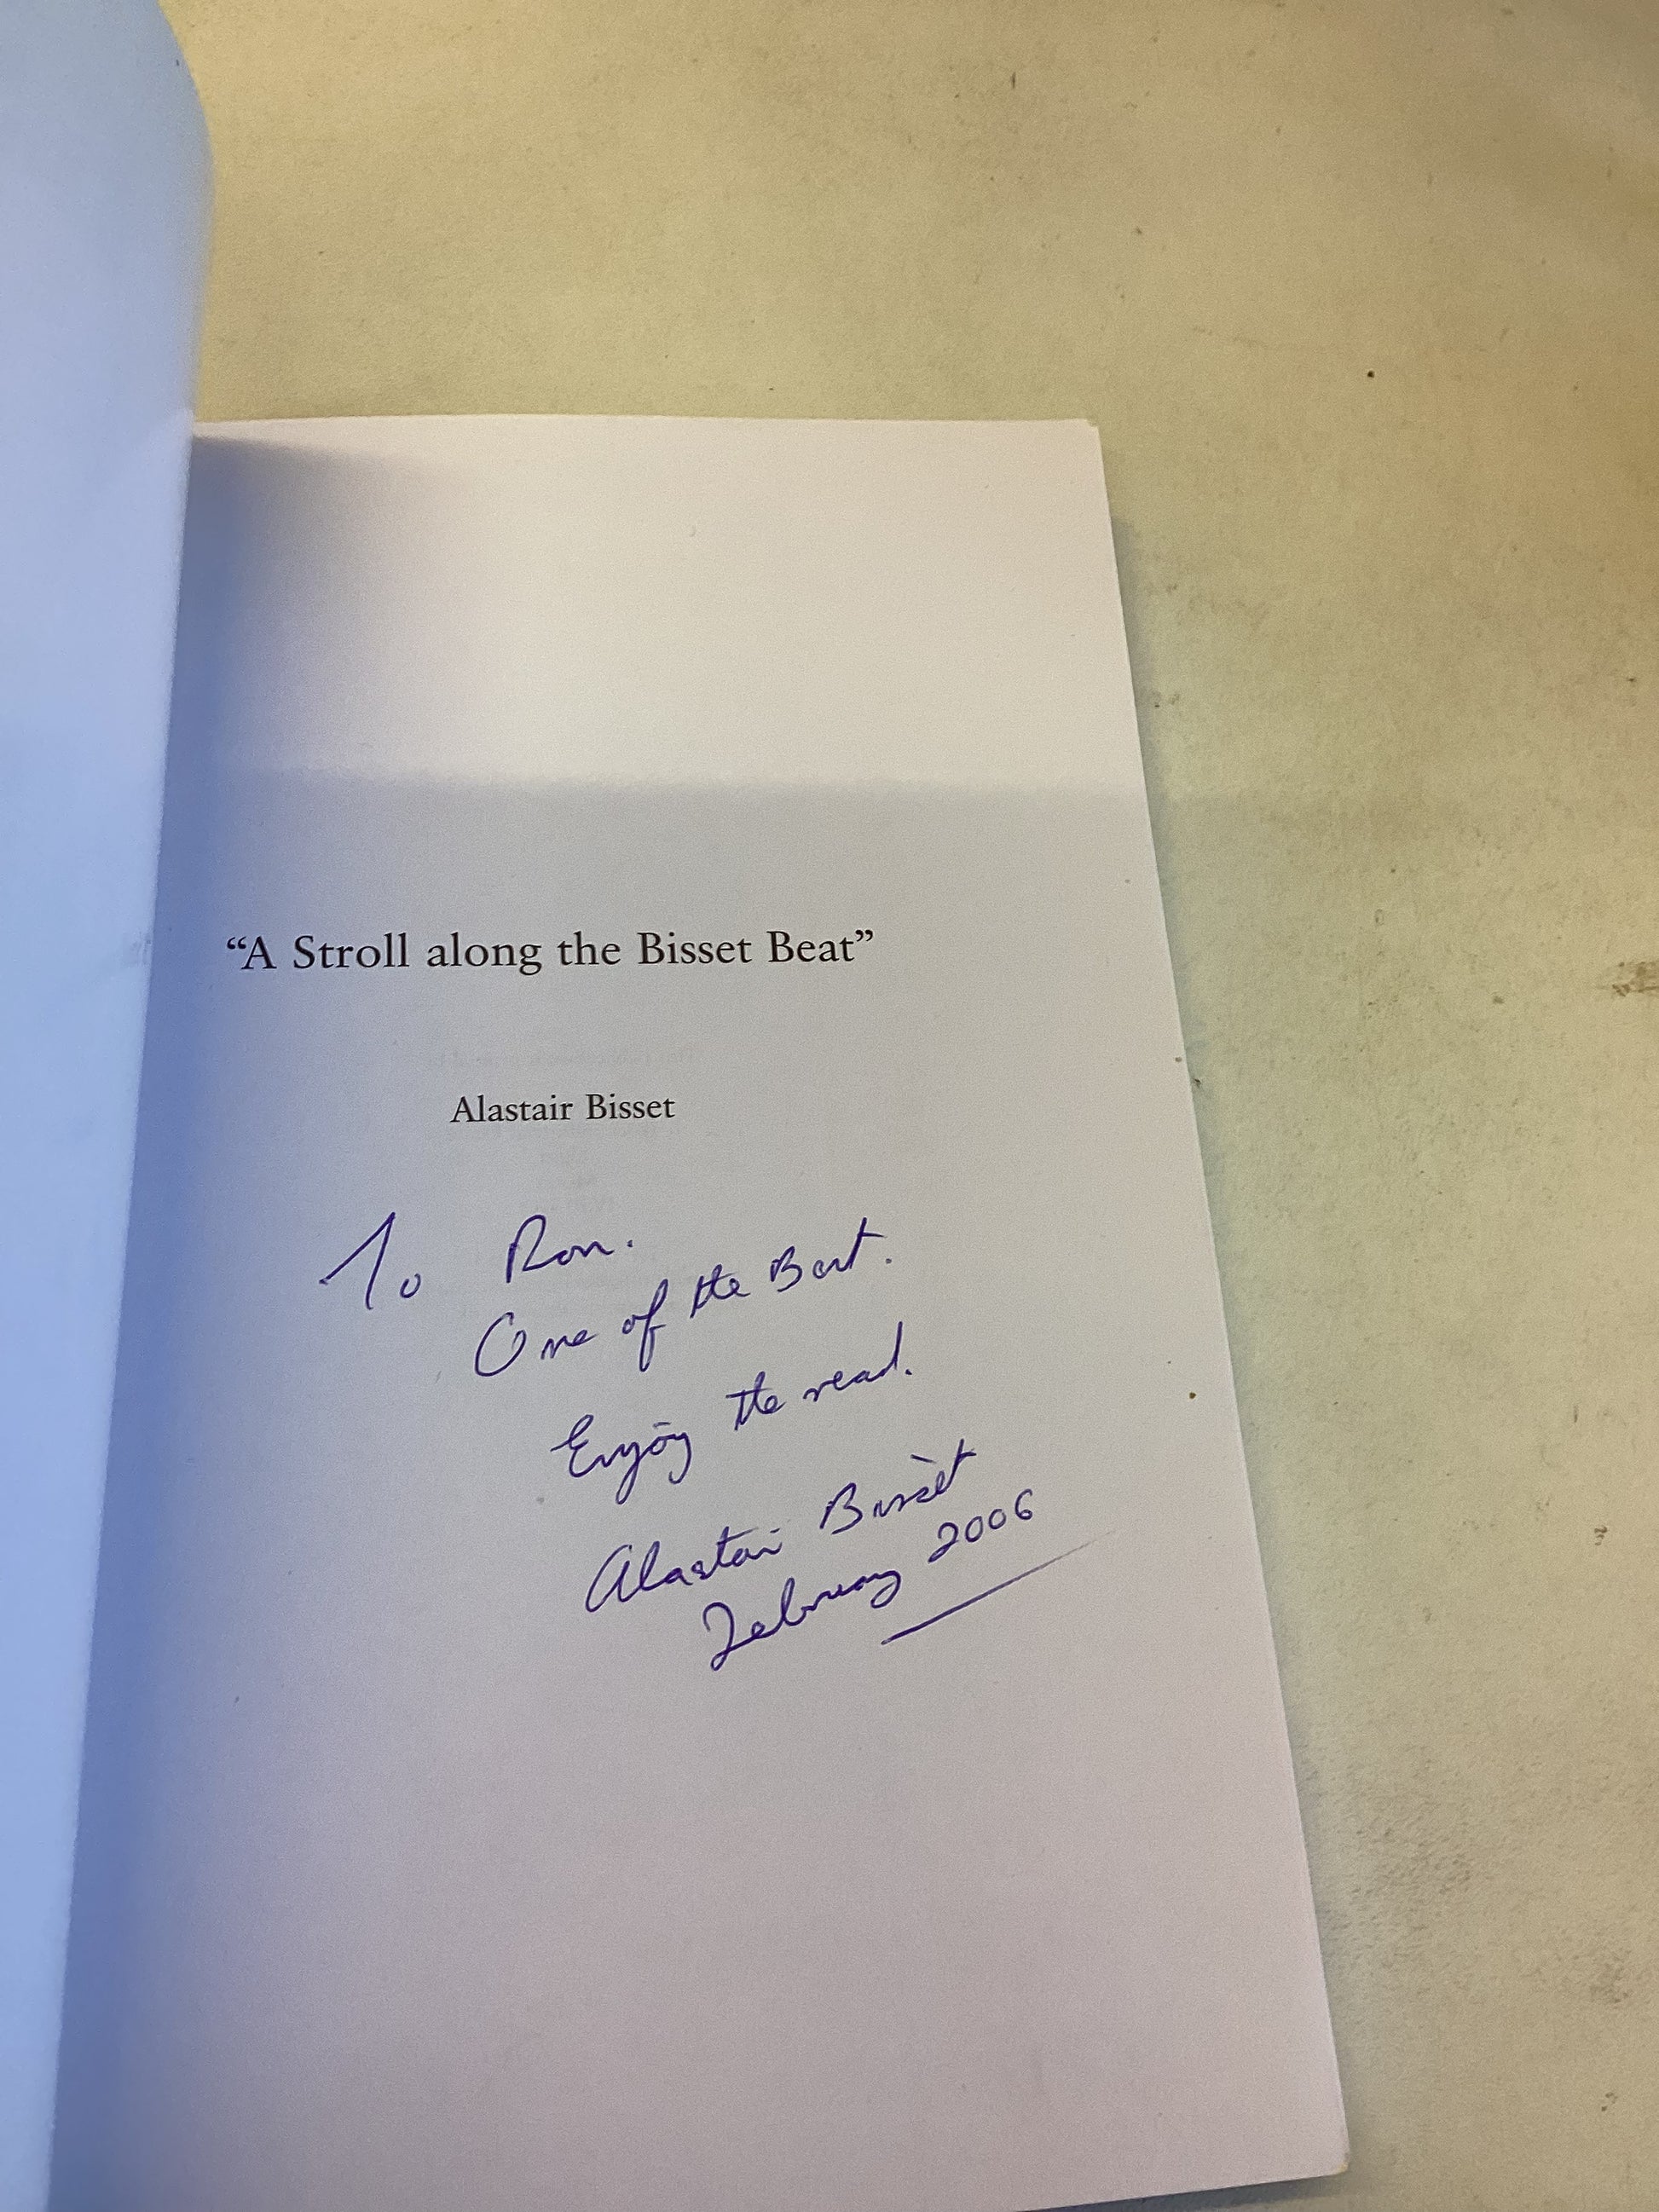 “A Stroll along the Bisset Beat”
Alastair Bisset
To Ron.
One of the Best.
Enjoy the read.
Alastair Bisset
February 2006